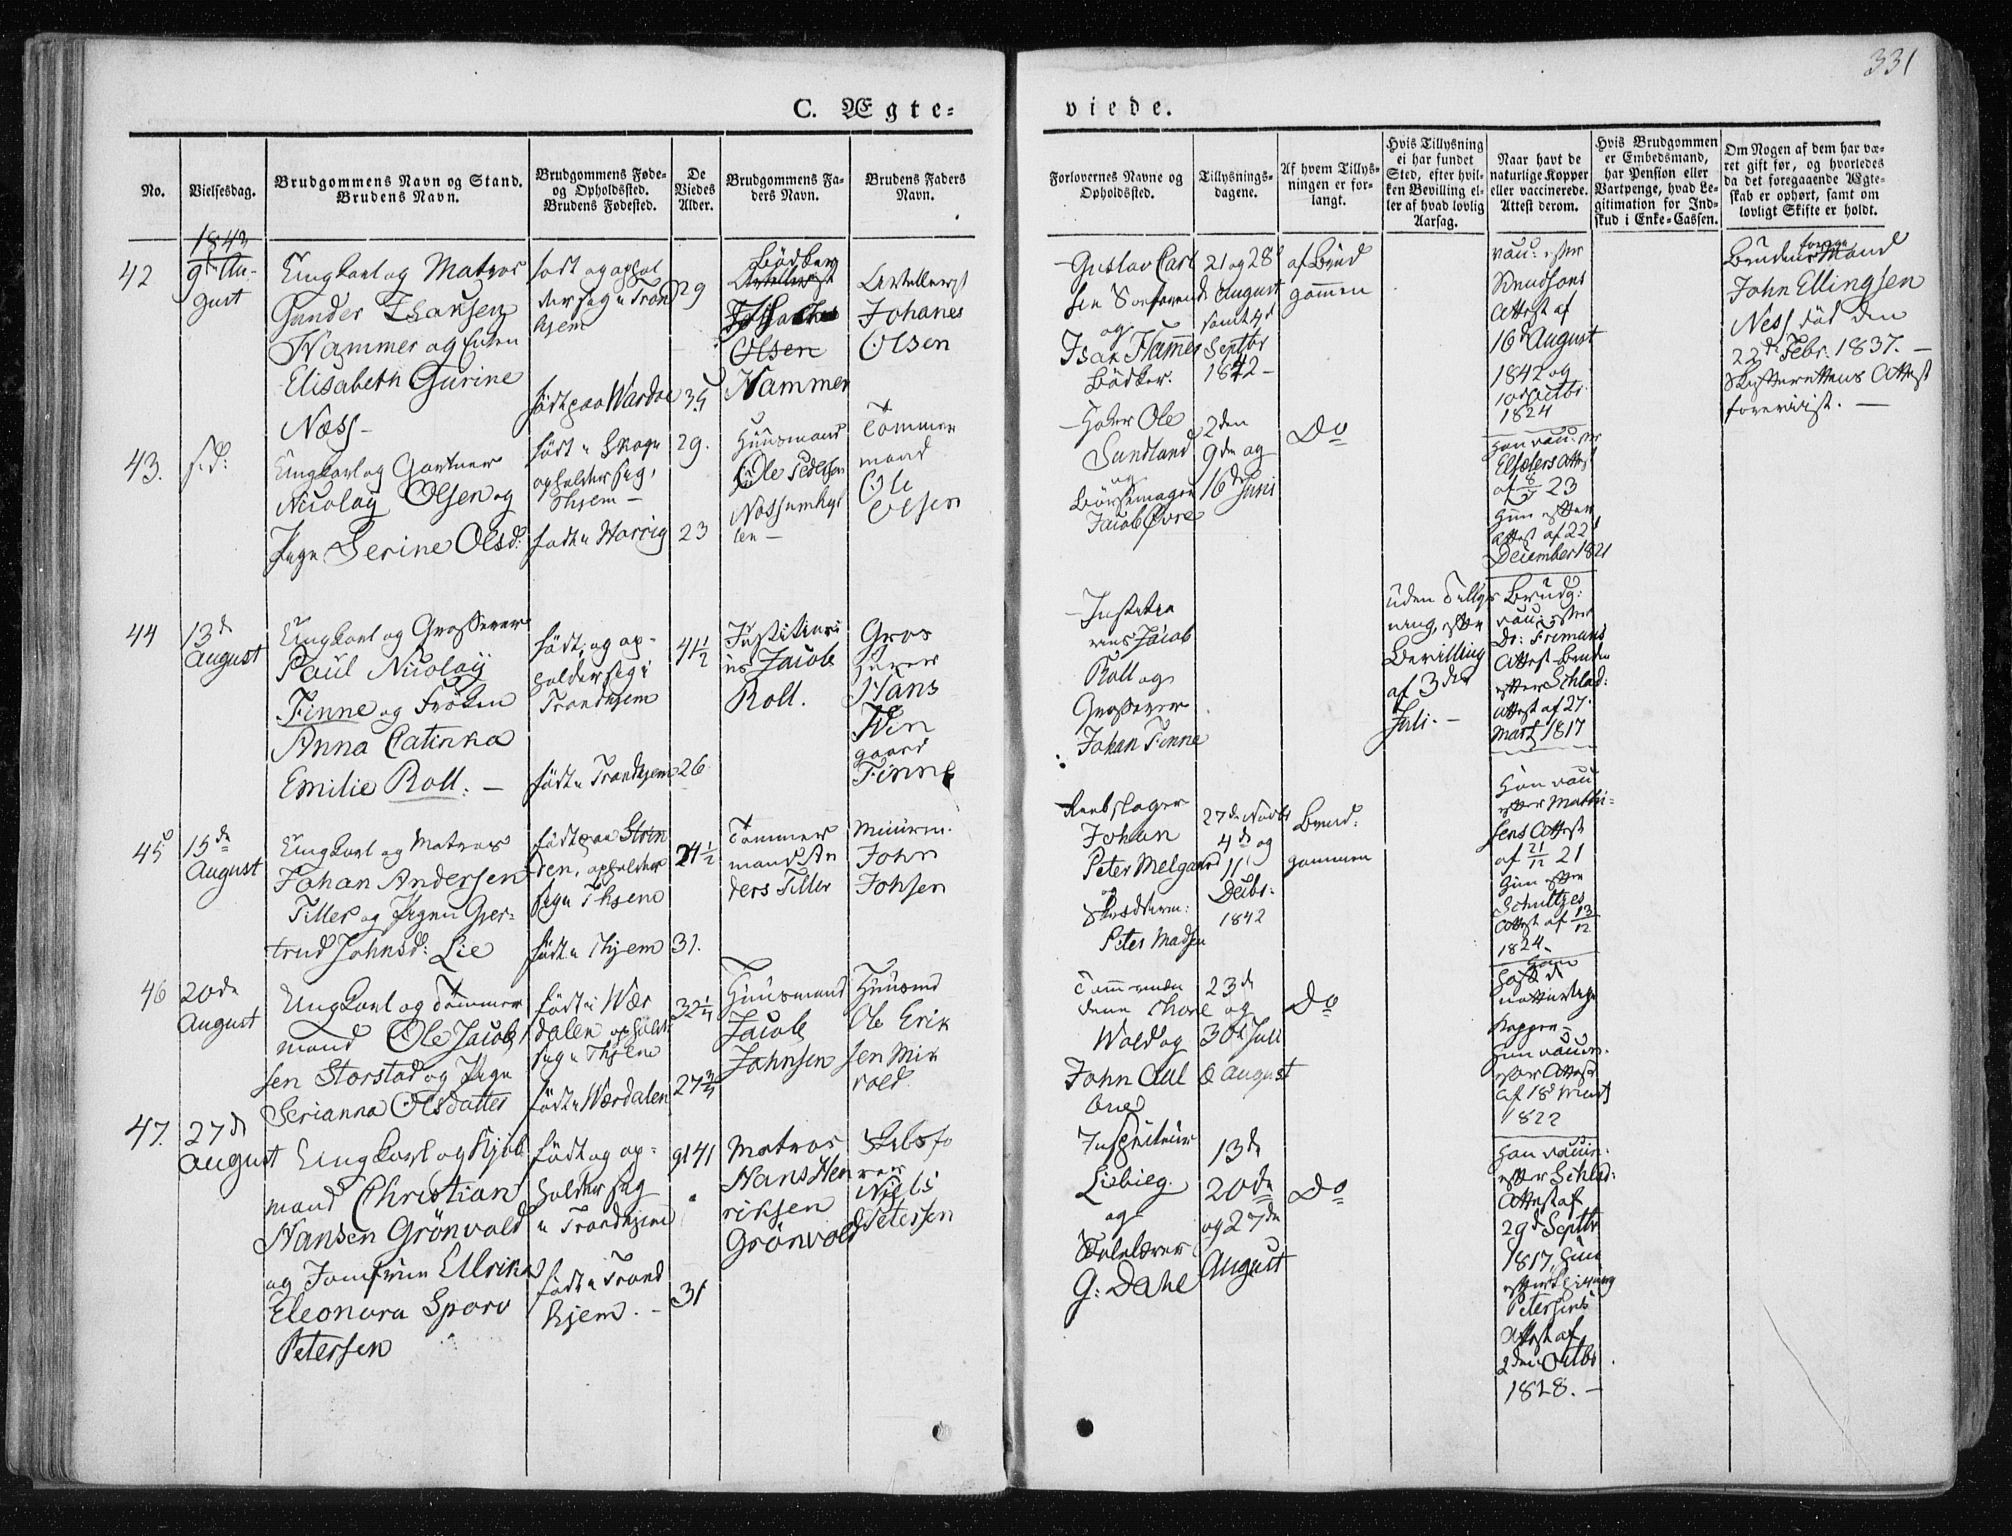 331
C. Ægte=
viede.
No.
Vielsesdag.
Brudgommens Navn og Stand.
Brudens Navn.
Brudgommens Føde-
og Opholdssted.
Brudens Fødested.
De
Viedes
Alder.
Brudgommens Fa-
ders Navn.
Brudens Faders
Navn.
Forlovernes Navne og
Opholdssted.
Tillysnings-
dagene.
Af hvem Tillys-
ningen er for-
langt.
Hvis Tillysning
ei har fundet
Sted, efter hvil-
ken Bevilling el-
ler af hvad lovlig
Aarsag.
Naar havt de
naturlige Kopper
eller vaccinerede.
Attest derom.
Hvis Brudgommen
er Embedsmand,
har Pension eller
Vartpenge, hvad Le-
gitimation for Ind-
skud i Enke=Cassen.
Om Nogen af dem har væ-
ret gift før, og hvorledes
da det foregaaende Ægte-
skab er ophørt, samt om
lovligt Skifte er holdt.
1843
42
9d Au-
gust
Ungkarl og Matros
Gunder Isaksen
Hammer og Enken
Elisabeth Gurine
Næss-
født og ophol
der sig i Tron
hjem
født paa Wardøe
29
35
Bødker
Olsen
Hammer
Artellerist
Johanes
Olsen
Gustav Carl
sen
og
Isak Hammer
Bødker.
21 og 28d
August
samt 4d
Septbr
1842-
af Brud
gommen
vacc: efter
Knudsons
Attest af
16d August
1842 og
10d Octbr
1824
Brudens forrige Mand
John Ellingsen
Ness død den
22d Febr. 1837.-
Skifterettens Attest
forevist. -
43.
s.d:
Ungkarl og Gartner
Nicolay Olsen og
Pige Serine Olsd:
født i Skogn
opholder sig i
Thjem-
født i
29.
23
Huusmand
Ole Pedersen
Næssumhyl
len-
Tømmer
mand
Ole
Olsen
Høker Ole
Sundland
og
Børsemager
Jacob Øvre
2den
9de og
16d Juni
Do
Han vacc: efter
Attest
af 8/7 23
Hun efter
Attest af 22d
December 1821
44
13d
August
Ungkarl og Grosserer
Paul Nicolaÿ
Finne og Frøken
Anna Catinka
Emilie Roll. -
født, og op-
holder sig i
Trondhjem
født i Trondhjem
41½
26
Justitiari
us Jacob
Roll.
Gros
serer
Hans
Wen
gaard
Finne
Justitia
rius Jacob
Roll og
Grosserer
Johan Finne
Uden Tillys
ning, efter
Bevilling
af 3die
Juli. -
Brudg:
vacc: efter
Dr:
Attest Bruden
efter Schlad:
Attest af 27.
Marts 1817
45
15de
August
Ungkarl og Matros
Johan Andersen
Tiller og Pigen Gjer-
trud Johnsd: Lie
født paa Strin
den, opholder
sig i Thjem
født i Thjem
24½
31.
Tømmer
mand An
ders Tiller
Muurm.
John
Johsen
Reebslager
Johan
Peter Melgaard
og
Peter Madsen
27de Novbr
4de og
11
Decbr:
1842
Brud:
gommen
Han vacc
efter Mathi-
sens Attest
af 21/12 21
Hun efter
Schultzes
Attest af 13/12
1824.
46
20de
August
Ungkarl og Tømmer
mand Ole Jacob
sen Storstad og Pige
Serianna Olsdatter
født i Wær
dalen opholder
sig i Thjem
født i Wærdalen
32¼
27¾
Huusmand
Jacob
Johnsen
Huusmd
Ole Erik
sen Mik
vold
Tømmermæn
dene Thore
Wold og
John Aal
23d
og
30d Juli
6 August
Do
Han
havt de
naturlige
Kopper-
Hun vaccin.
efter Attest
af 18d Marts
1822
47.
27d
August
Ungkarl og Kjøb
mand Christian
Hansen Grønvold
og Jomfrue Ulrika
Eleonora Sparv
Petersen
født og op-
holder sig
i Trondhjem
født i Trond
hjem. -
41
31
Matros
Hans Hen
riksen
Grønvold
Skibsfø
rer
Niels
Petersen
Inspecteur
Lisbieg.
og
Skolelærer
G: Dahl
13de
20de
og 27de
August
Do
Han vaccin.
efter Schlad:
Attest af
29d Septbr
1817, Hun
efter
Petersens
Attest af
2den Octbr
1828. -